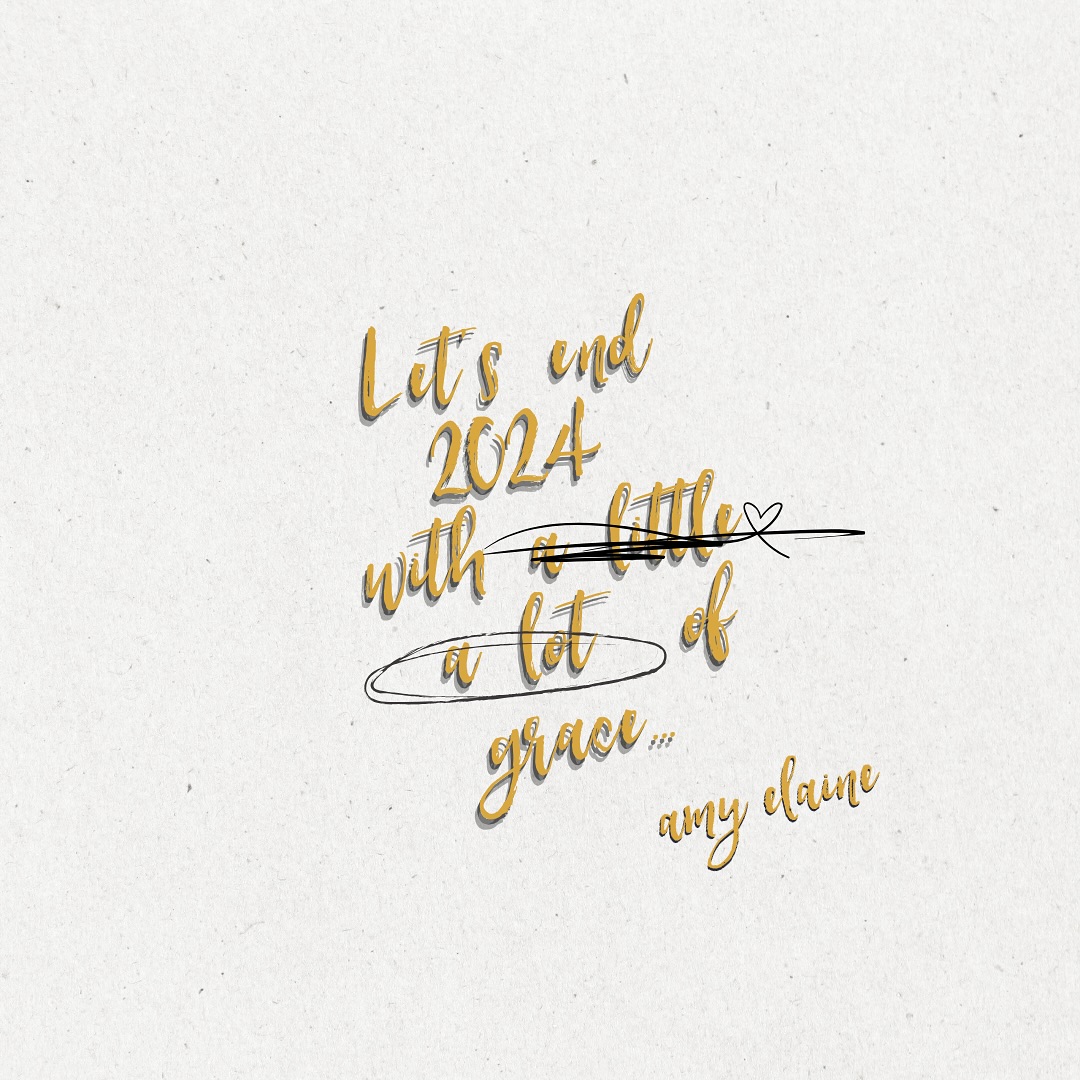 Let's end
2024
with a little
a lot of
grace...
amy elaine